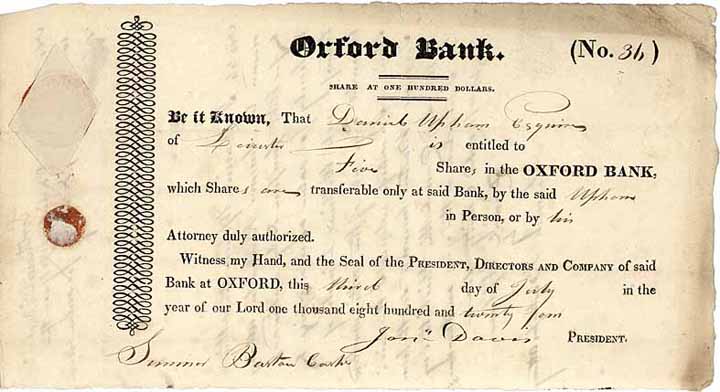 Oxford Bank. (No. 36)
SHARE AT ONE HUNDRED DOLLARS.
Be it Known, That Daniel Upham Esquire
of Leicester is entitled to
Five Shares in the OXFORD BANK,
which Shares are transferable only at said Bank, by the said Upham
in Person, or by his
Attorney duly authorized.
Witness my Hand, and the Seal of the PRESIDENT, DIRECTORS AND COMPANY of said
Bank at OXFORD, this third day of July in the
year of our Lord one thousand eight hundred and twenty four
Jonᵃ Davis PRESIDENT.
Sumner Barton Cashr